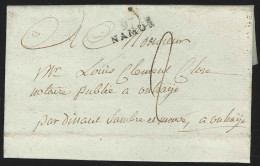 A Monsieur
NAMUR
Mr Louis Clement Close
notaire public a
par dinant Sambre et meuse, a